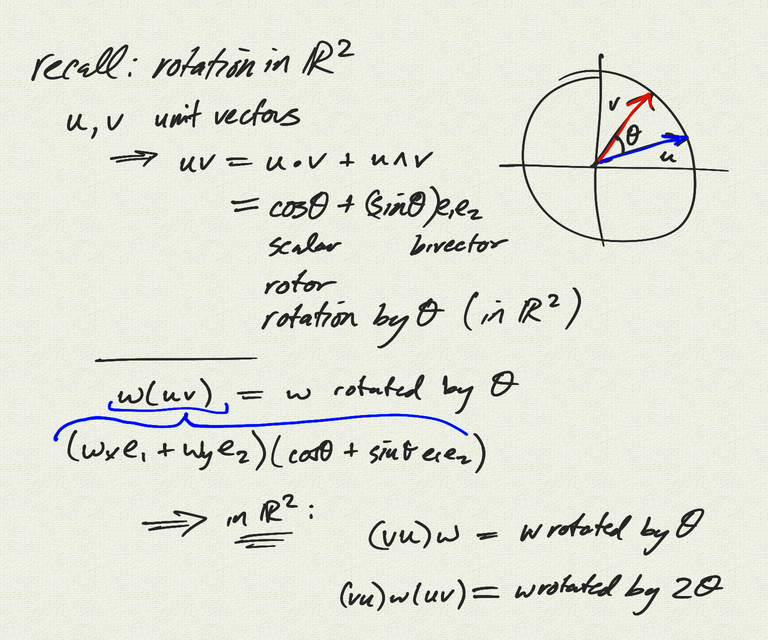 recall: rotation in ℝ²
u, v unit vectors
⟹ uv = u • v + u ∧ v
= cosθ + (sinθ)e₁e₂
scalar bivector
rotor
rotation by θ (in ℝ²)
v
θ
u
w(uv) = w rotated by θ
(wₓe₁ + wᵧe₂)(cosθ + sinθ e₁e₂)
⟹ in ℝ²:
(vu)w = w rotated by θ
(vu)w(uv) = w rotated by 2θ